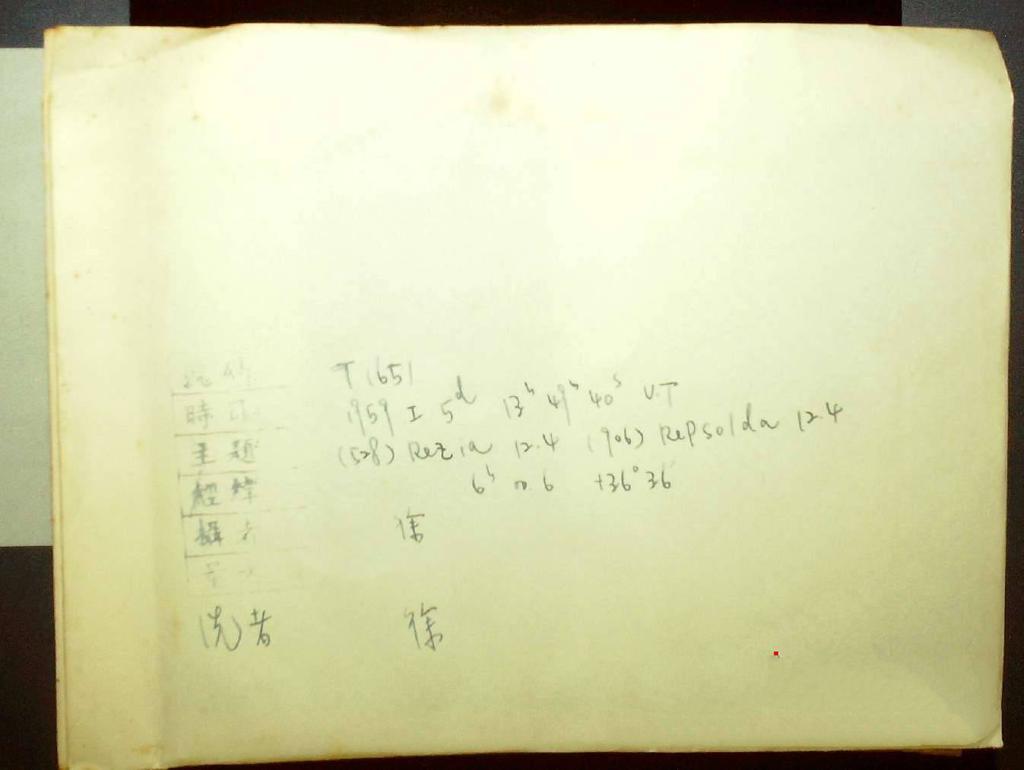 T1651
時
1959 I 5ᵈ 13ʰ 49ᵐ 40ˢ U.T
主題 (528) Rezia 12.4 (906) Repsolda 12.4
經緯 6ʰ 00.6 +36° 36'
攝者 徐
洗者 徐